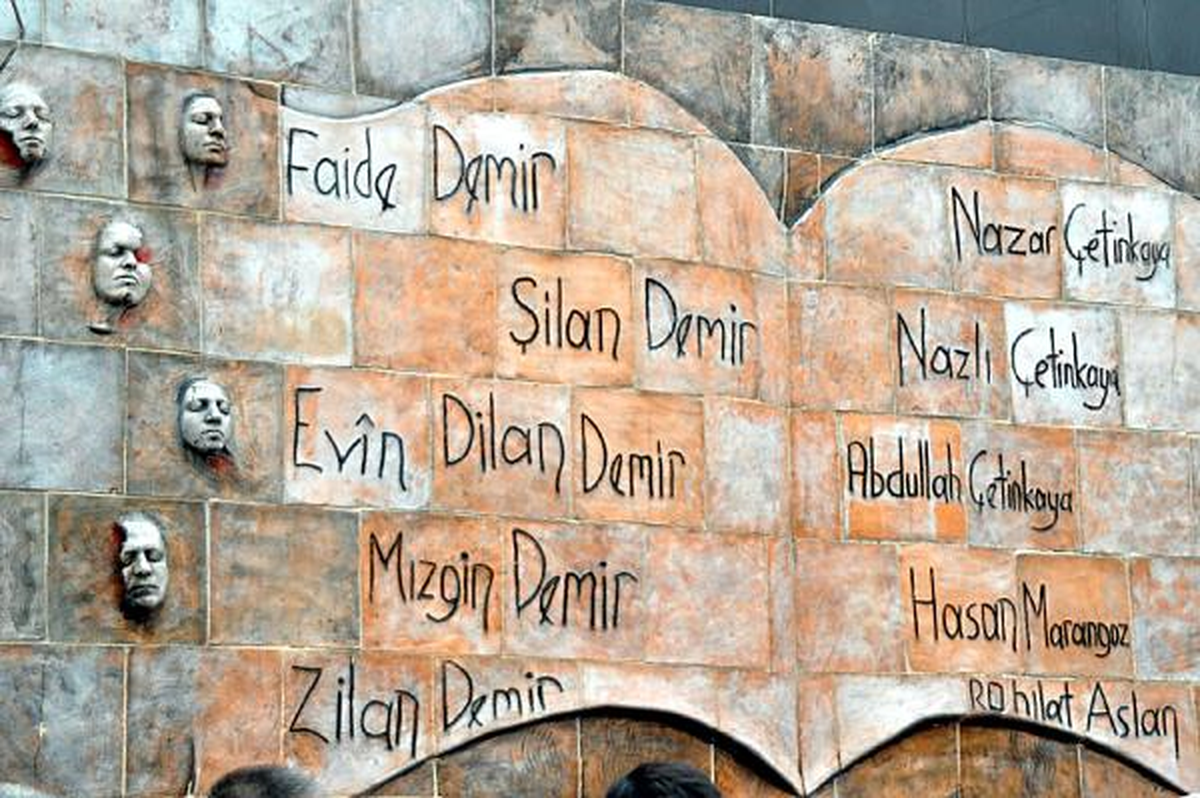 Faide Demir
Nazar Çetinkaya
Şilan Demir
Nazlı Çetinkaya
Evîn Dilan Demir
Abdullah Çetinkaya
Mızgin Demir
Hasan Marangoz
Zilan Demir
Aslan